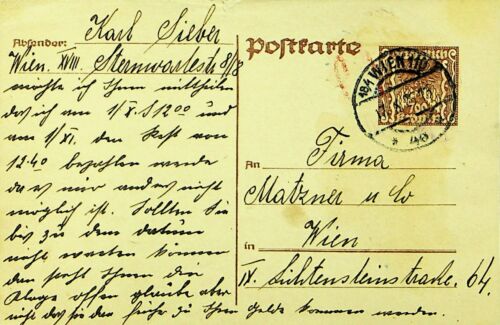 Absender: Karl Sieber
Wien. XVIII. Sternwartestr 8/8
möchte ich Ihnen mitteilen
das ich am 1/X. S 12.00 und
am 1/XI. den Rest von
12.40 bezahlen werde
da es mir anders nicht
möglich ist. Sollten Sie
bis zu dem datum
nicht warten können
den steht Ihnen die
Klage offen glaube aber
nicht das sie den früher zu Ihren Gelde kommen werden.
Postkarte
WIEN 110
An Firma
Matzner u Co
Wien
in
IX. Lichtensteinstrasse. 64.